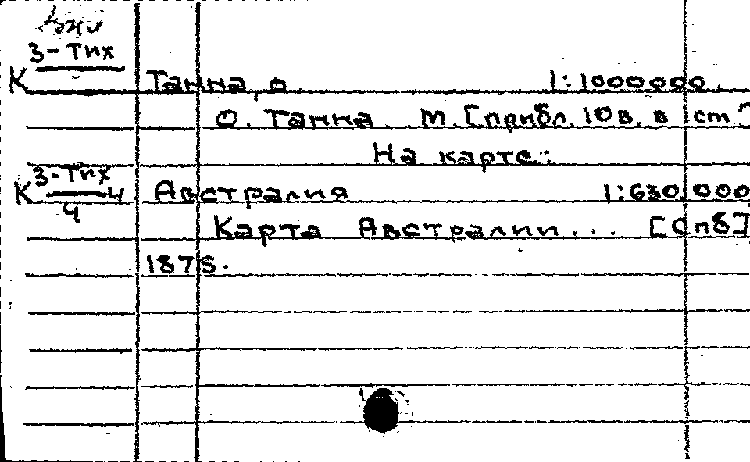 З-Тих
К Танна, о. 1:1000000.
О. Танна. М. [прибл. 10 в. в 1 cm]
На карте:
З-Тих
К 4 Австралия 1:630,000
4
Карта Австралии... [Спб]
1875.